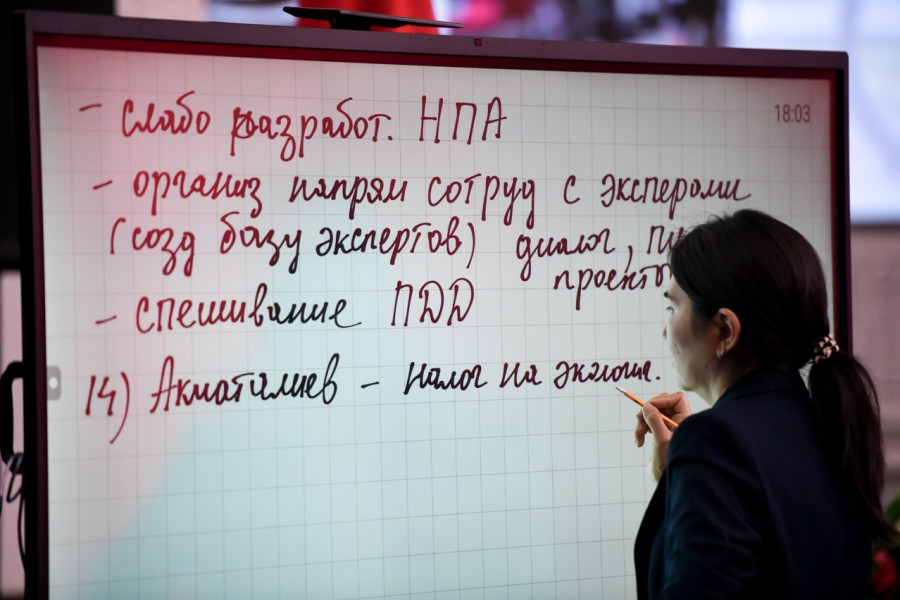 18:03
- слабо разработ. НПА
- организ напрям сотруд с эксперами
(созд базу экспертов) диалог,
проекто
- спешивание ПДД
14) Акматалиев - налог на экологие.